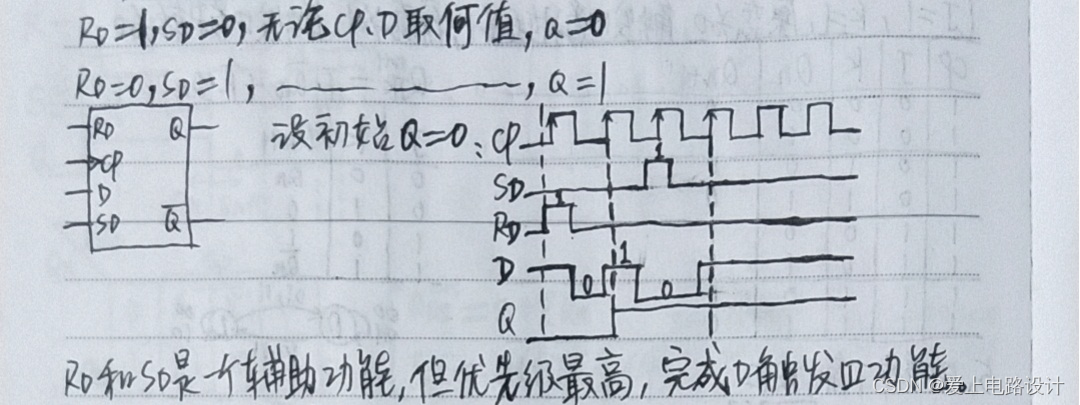 RD=1,SD=0,无论CP.D取何值,Q=0
RD=0,SD=1, —— ———, Q=1
RD Q
CP
D
SD Q̅
设初始Q=0:
CP
1
SD
1
RD
D 0 1 0
Q
RD和SD是一个辅助功能,但优先级最高,完成D触发器功能.
CSDN @爱上电路设计